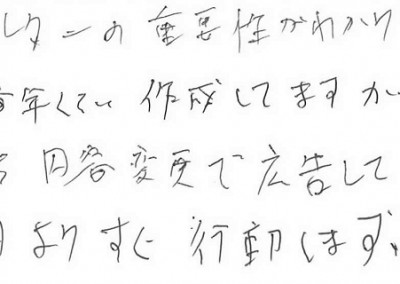 レタンの重要性がわかり
年くてい 作成してますが
内容変更で広告して
よりすぐ行動します、